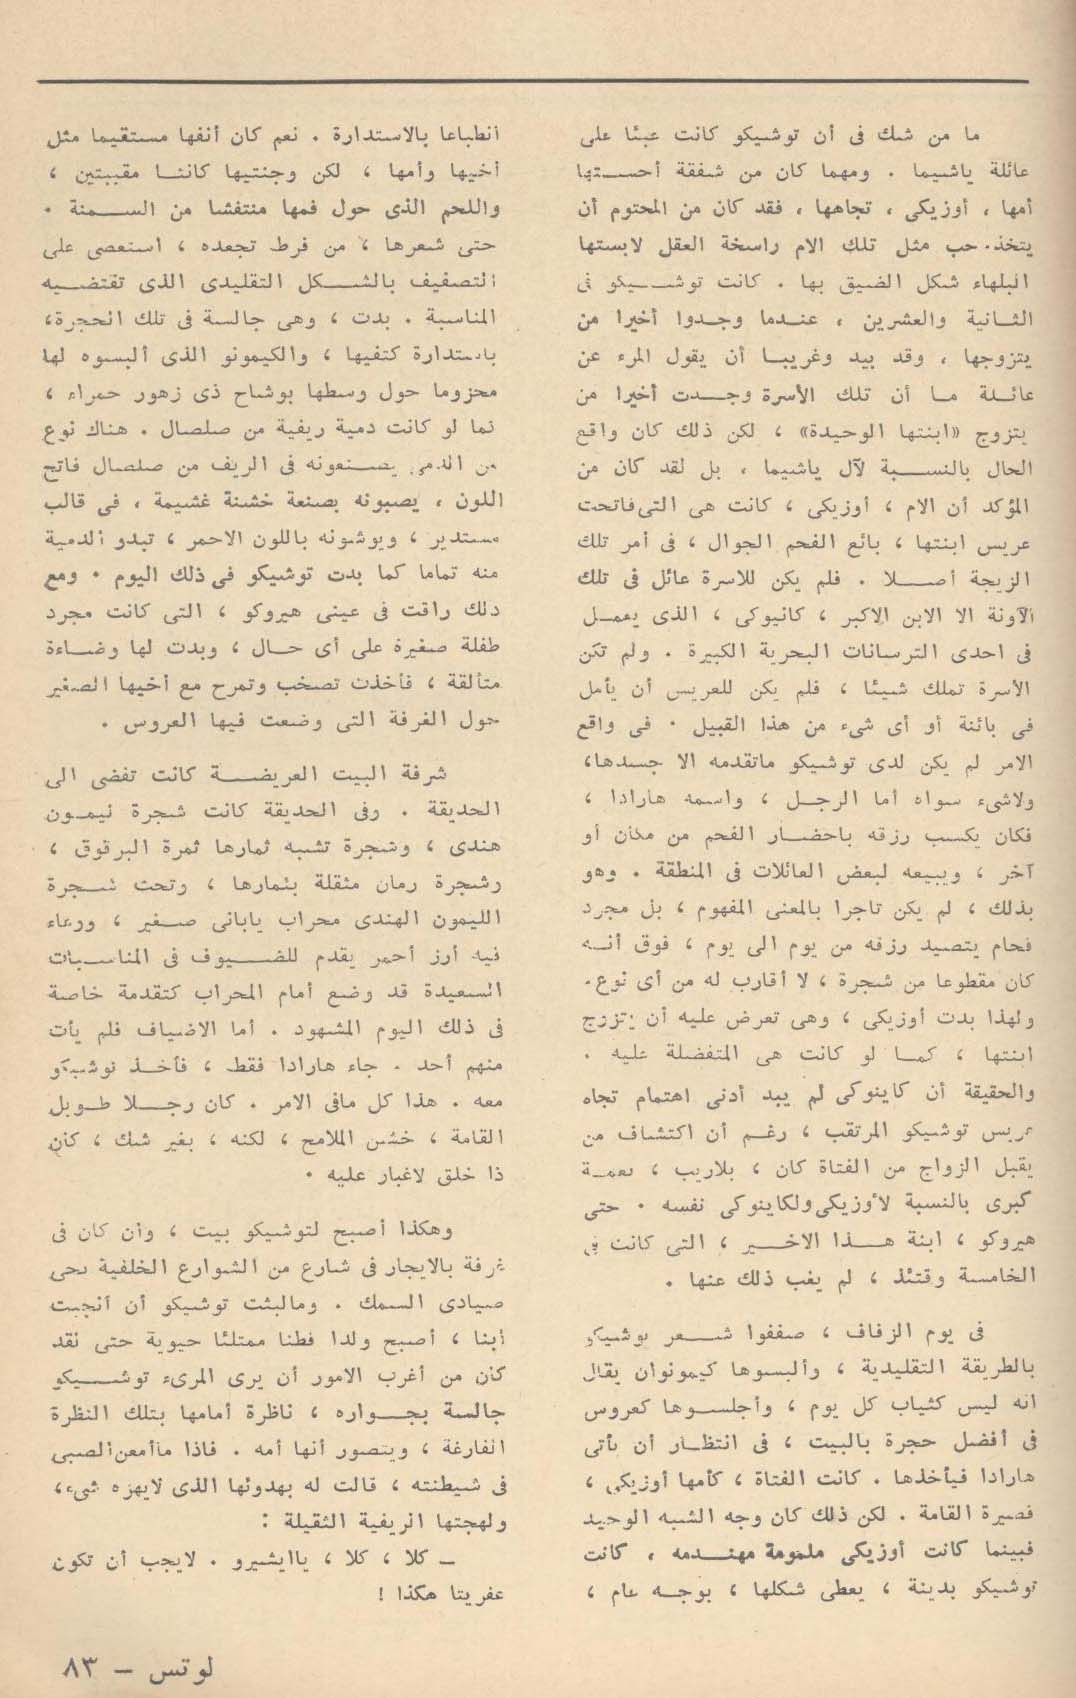 ما من شك فى أن توشيكو كانت عبئا على
عائلة ياشيما . ومهما كان من شفقة أحستها
أمها ، أوزيكى ، تجاهها ، فقد كان من المحتوم أن
يتخذ حب مثل تلك الام راسخة العقل لابستها
البلهاء شكل الضيق بها . كانت توشيكو فى
الثانية والعشرين ، عندما وجدوا أخيرا من
يتزوجها ، وقد بيد وغريبا أن يقول المرء عن
عائلة ما أن تلك الأسرة وجدت أخيرا من
يتزوج «ابنتها الوحيدة» ، لكن ذلك كان واقع
الحال بالنسبة لآل ياشيما ، بل لقد كان من
المؤكد أن الام ، أوزيكى ، كانت هى التى فاتحت
عريس ابنتها ، بائع الفحم الجوال ، فى أمر تلك
الزيجة أصلا . فلم يكن للاسرة عائل فى تلك
الآونة الا الابن الاكبر ، كانيوكى ، الذى يعمل
فى احدى الترسانات البحرية الكبيرة . ولم تكن
الأسرة تملك شيئا ، فلم يكن للعريس أن يأمل
فى بائنة أو أى شىء من هذا القبيل . فى واقع
الامر لم يكن لدى توشيكو ماتقدمه الا جسدها،
ولاشىء سواه أما الرجل ، واسمه هارادا ،
فكان يكسب رزقه باحضار الفحم من مكان أو
آخر ، ويبيعه لبعض العائلات فى المنطقة . وهو
بذلك ، لم يكن تاجرا بالمعنى المفهوم ، بل مجرد
فحام يتصيد رزقه من يوم الى يوم ، فوق أنه
كان مقطوعا من شجرة ، لا أقارب له من أى نوع.
ولهذا بدت أوزيكى ، وهى تعرض عليه أن يتزوج
ابنتها ، كما لو كانت هى المتفضلة عليه .
والحقيقة أن كاينوكى لم يبد أدنى اهتمام تجاه
عريس توشيكو المرتقب ، رغم أن اكتشاف من
يقبل الزواج من الفتاة كان ، بلاريب ، نعمة
كبرى بالنسبة لأوزيكى ولكاينوكى نفسه . حتى
هيروكو ، ابنة هذا الاخير ، التى كانت فى
الخامسة وقتئذ ، لم يغب ذلك عنها .
فى يوم الزفاف ، صففوا شعر توشيكو
بالطريقة التقليدية ، وألبسوها كيمونوان يقال
انه ليس كثياب كل يوم ، وأجلسوها كعروس
فى أفضل حجرة بالبيت ، فى انتظار أن يأتى
هارادا فيأخذها . كانت الفتاة ، كأمها أوزيكى ،
قصيرة القامة . لكن ذلك كان وجه الشبه الوحيد
فبينما كانت أوزيكى ملمومة مهندمه ، كانت
توشيكو بدينة ، يعطى شكلها ، بوجه عام ،
انطباعا بالاستدارة . نعم كان أنفها مستقيما مثل
أخيها وأمها ، لكن وجنتيها كانتا مقببتين ،
واللحم الذى حول فمها منتفشا من السمنة .
حتى شعرها ، من فرط تجعده ، استعصى على
التصفيف بالشكل التقليدى الذى تقتضيه
المناسبة . بدت ، وهى جالسة فى تلك الحجرة،
باستدارة كتفيها ، والكيمونو الذى ألبسوه لها
محزوما حول وسطها بوشاح ذى زهور حمراء ،
كما لو كانت دمية ريفية من صلصال . هناك نوع
من الدمى يصنعونه فى الريف من صلصال فاتح
اللون ، يصبونه بصنعة خشنة غشيمة ، فى قالب
مستدير ، ويوشونه باللون الاحمر ، تبدو الدمية
منه تماما كما بدت توشيكو فى ذلك اليوم . ومع
ذلك راقت فى عينى هيروكو ، التى كانت مجرد
طفلة صغيرة على أى حال ، وبدت لها وضاءة
متألقة ، فأخذت تصخب وتمرح مع أخيها الصغير
حول الغرفة التى وضعت فيها العروس .
شرفة البيت العريضة كانت تفضى الى
الحديقة . وفى الحديقة كانت شجرة ليمون
هندى ، وشجرة تشبه ثمارها ثمرة البرقوق ،
وشجرة رمان مثقلة بثمارها ، وتحت شجرة
الليمون الهندى محراب يابانى صغير ، ووعاء
فيه أرز أحمر يقدم للضيوف فى المناسبات
السعيدة قد وضع أمام المحراب كتقدمة خاصة
فى ذلك اليوم المشهود . أما الاضياف فلم يأت
منهم أحد . جاء هارادا فقط ، فأخذ توشيكو
معه . هذا كل مافى الامر . كان رجلا طويل
القامة ، خشن الملامح ، لكنه ، بغير شك ، كان
ذا خلق لاغبار عليه .
وهكذا أصبح لتوشيكو بيت ، وان كان فى
غرفة بالايجار فى شارع من الشوارع الخلفية بحى
صيادى السمك . ومالبثت توشيكو أن أنجبت
ابنا ، أصبح ولدا فطنا ممتلئا حيوية حتى لقد
كان من أغرب الامور أن يرى المرىء توشيكو
جالسة بجواره ، ناظرة أمامها بتلك النظرة
الفارغة ، ويتصور أنها أمه . فاذا ماأمعن الصبى
فى شيطنته ، قالت له بهدوئها الذى لايهزه شىء،
ولهجتها الريفية الثقيلة :
ــ كلا ، كلا ، ياايشيرو . لايجب أن تكون
عفريتا هكذا !
لوتس – ٨٣